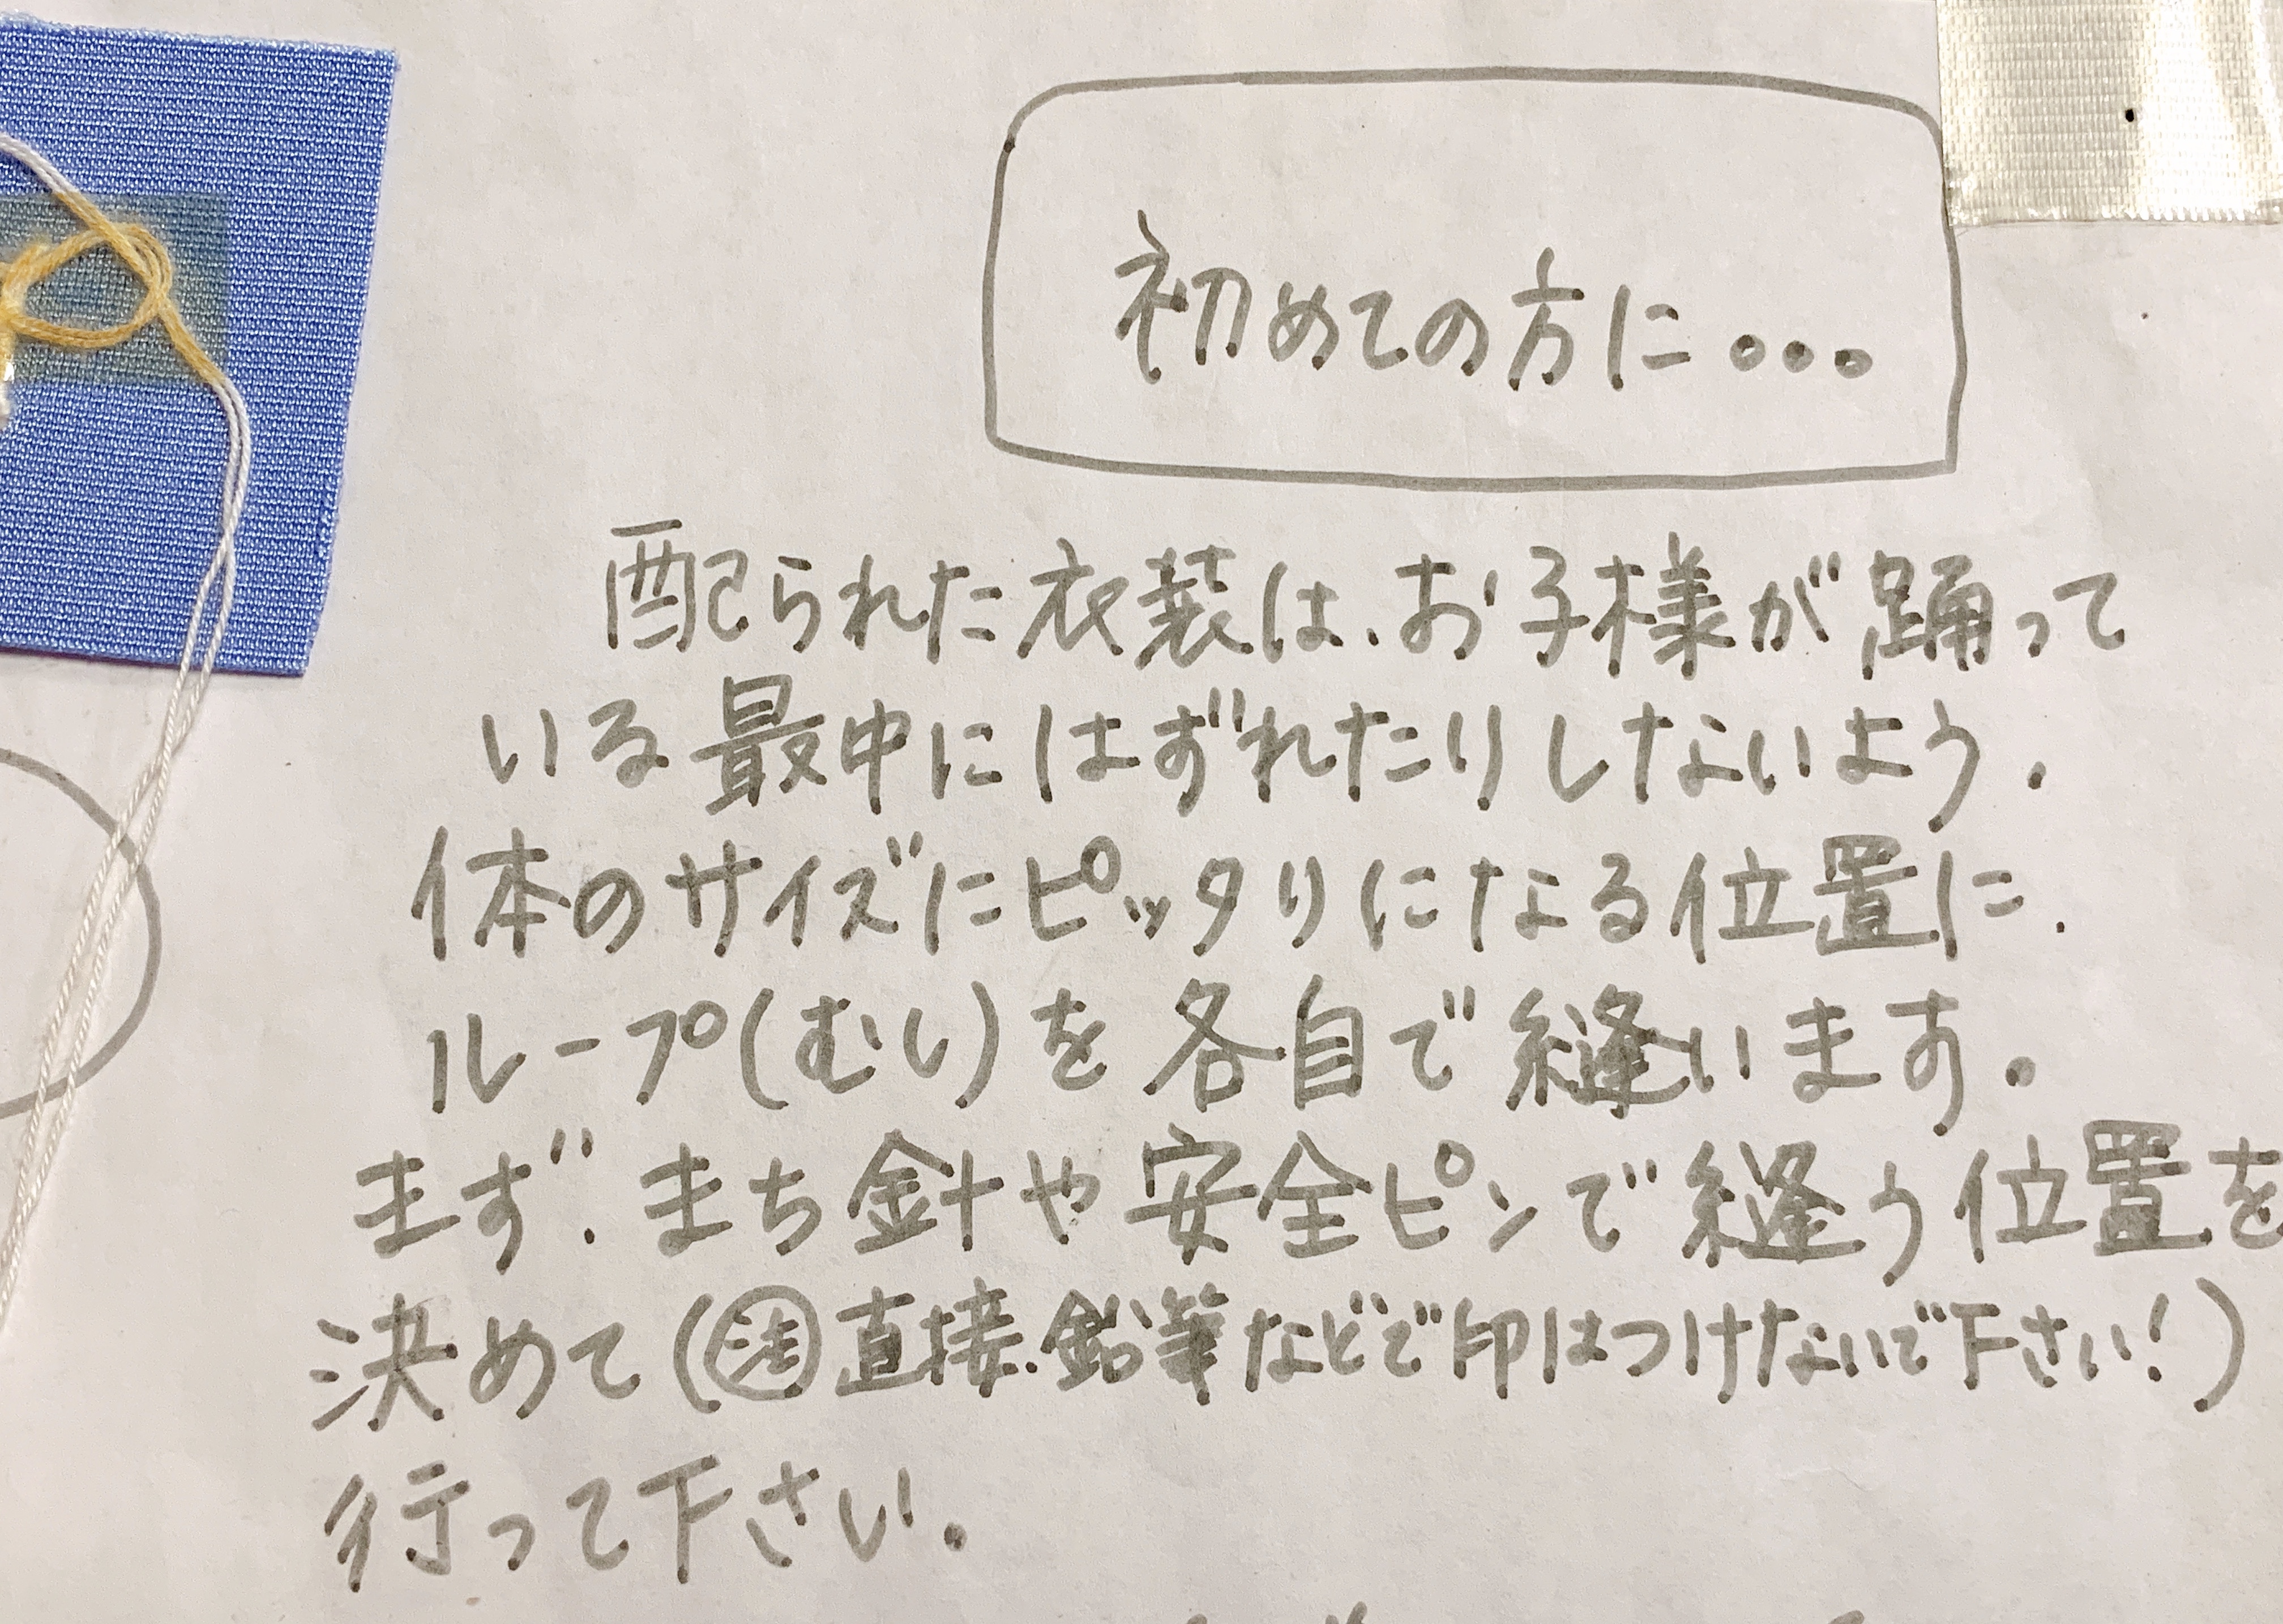 初めての方に...
配られた衣装は、お子様が踊って
いる最中にはずれたりしないよう、
体のサイズにピッタリになる位置に、
ループ(むし)を各自で縫います。
まず、まち針や安全ピンで縫う位置を
決めて(注直接、鉛筆などで印はつけないで下さい!)
行って下さい。